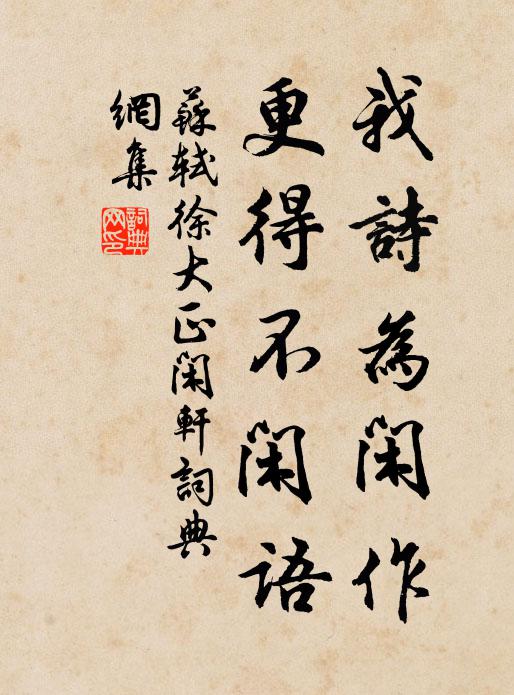 我詩為閑作
更得不閑語
蘇軾徐大正閑軒詞典
網集
詞典网印